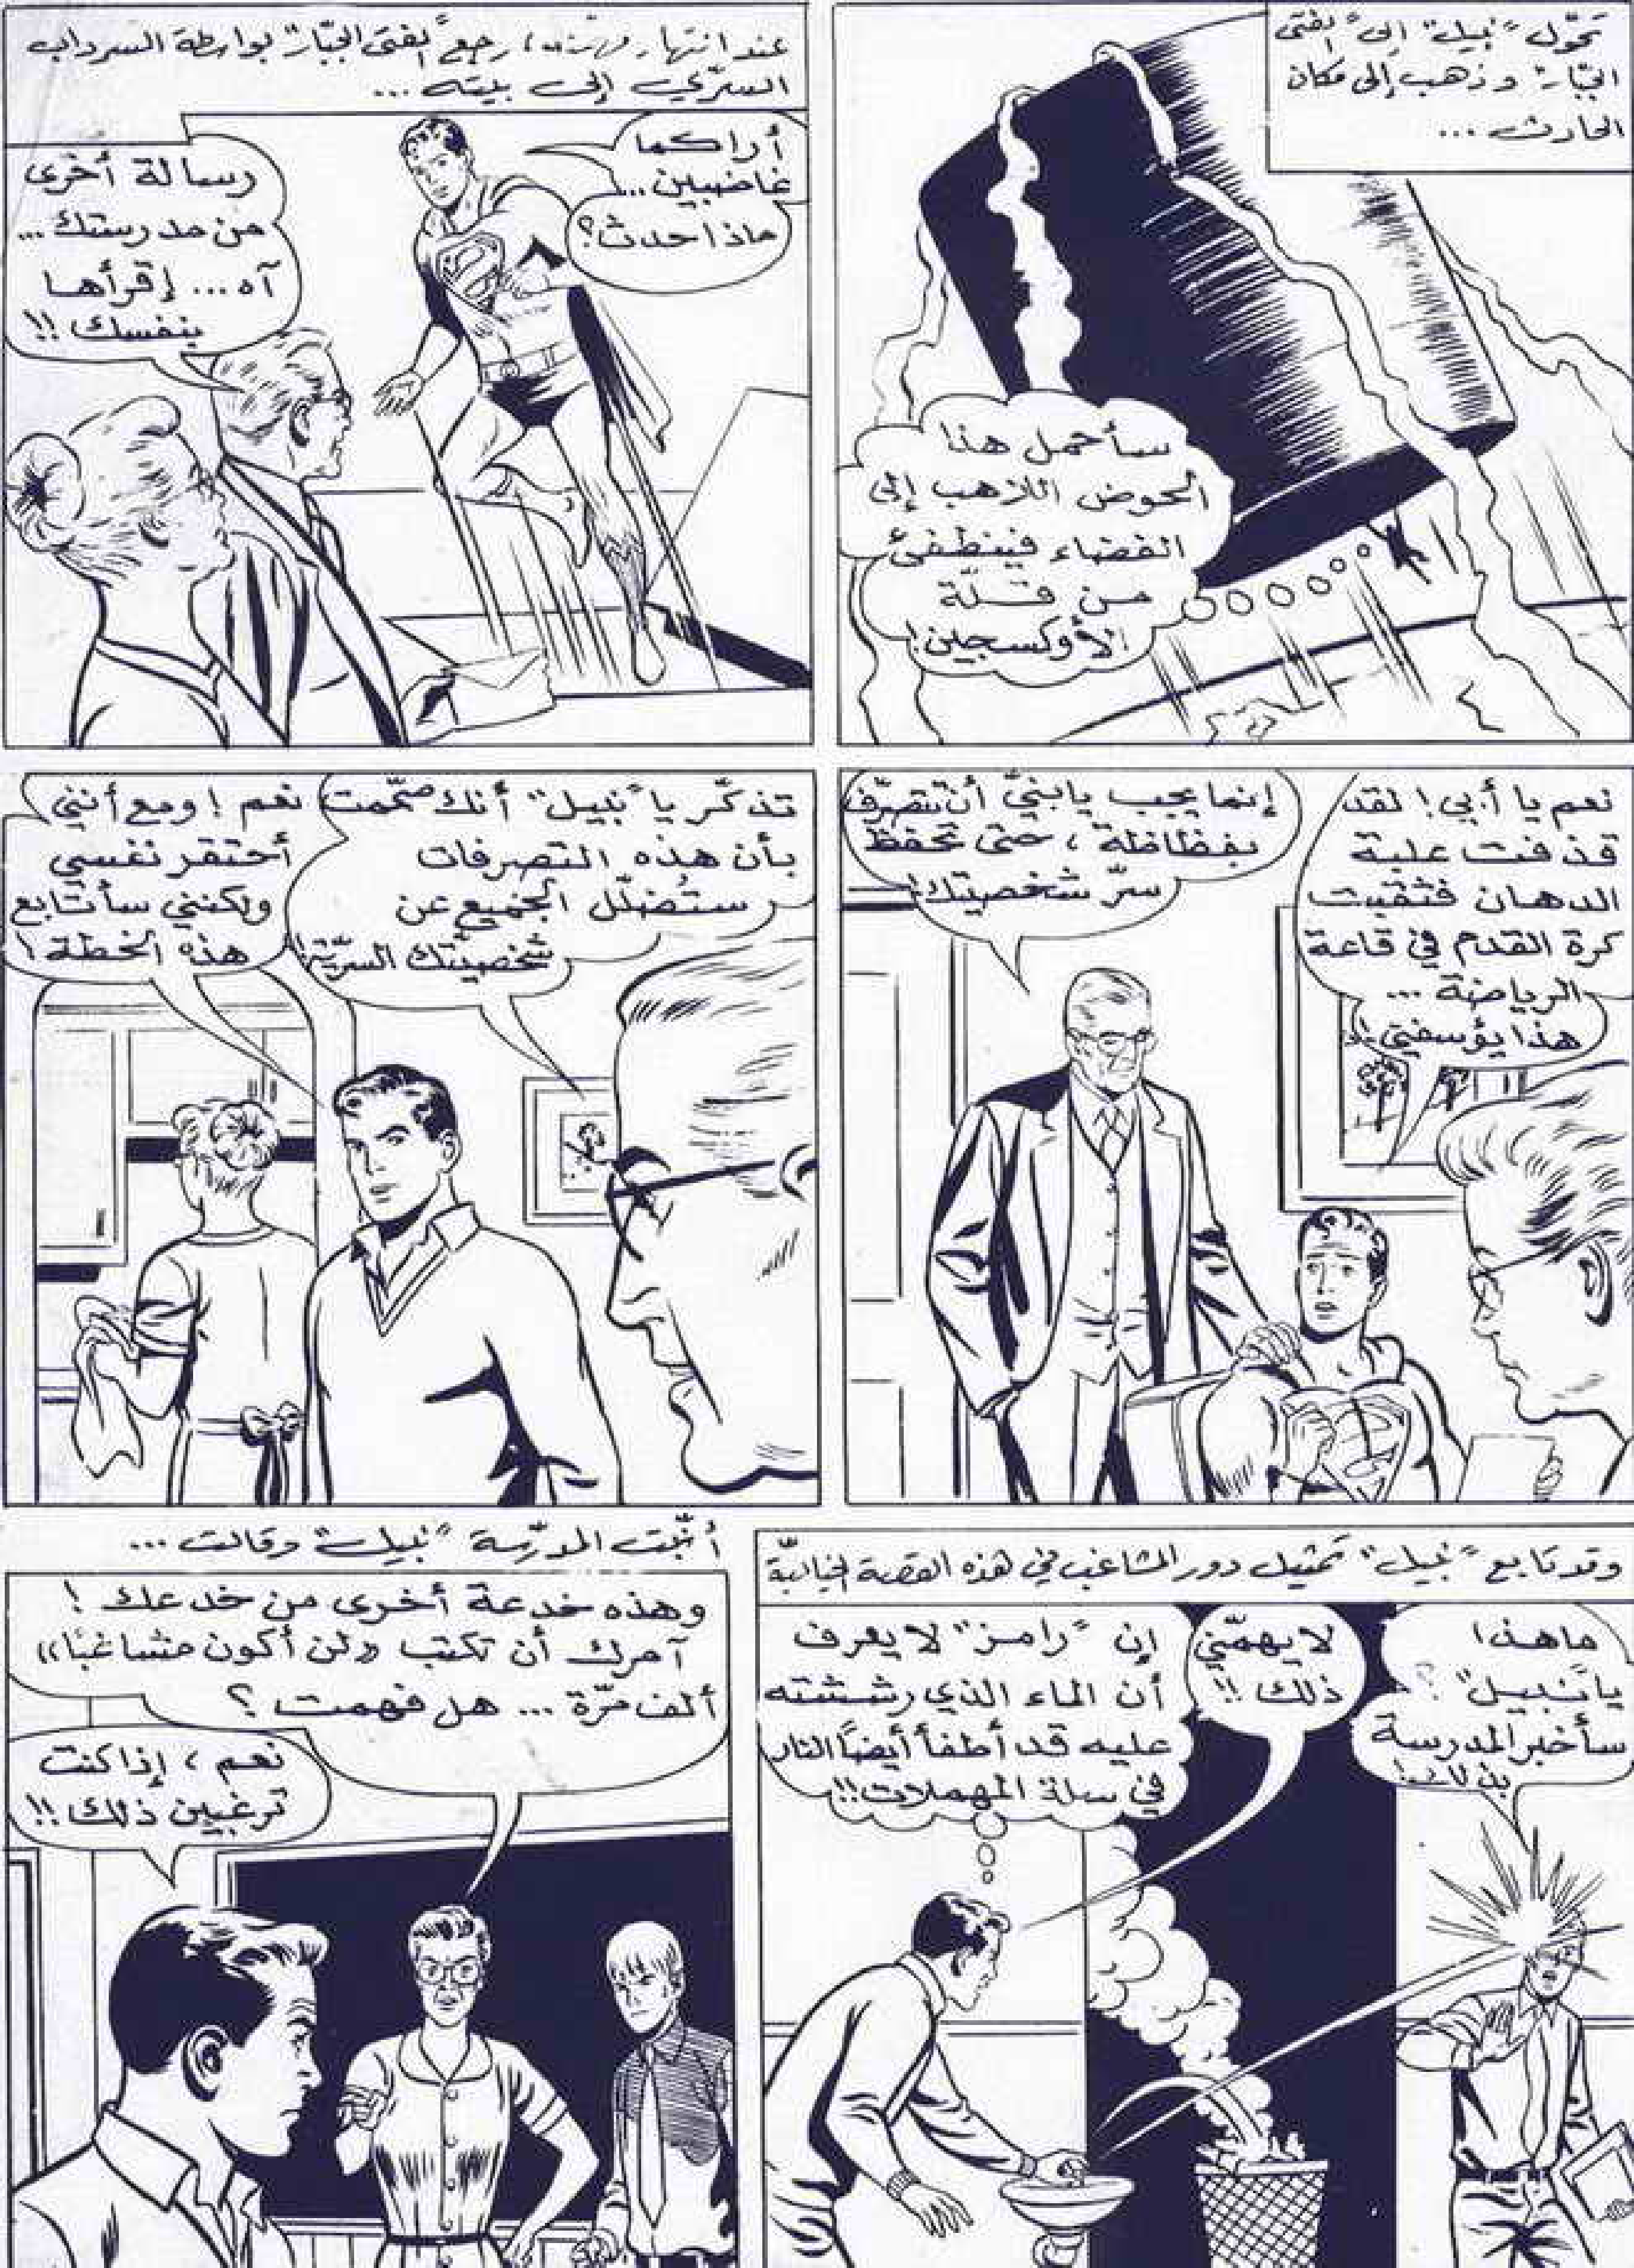 تحوّل "نبيل" إلى "الفتى
الجبّار" وذهب إلى مكان
الحادث...
سأحمل هذا
الحوض اللاهب إلى
الفضاء فينطفئ
من قلّة
الأوكسجين!
عند انتهاء رجع "الفتى الجبّار" بواسطة السرداب
السرّي إلى بيته...
أراكما
غاضبين...
ماذا حدث؟
رسالة أخرى
من مدرستك...
آه... إقرأها
بنفسك!!
نعم يا أبي! لقد
قذفت علبة
الدهان فثقبت
كرة القدم في قاعة
الرياضة...
هذا يؤسفني!
إنما يجب يا بنيّ أن تتصرّف
بفظاظة، حتى تحفظ
سرّ شخصيتك!
تذكّر يا "نبيل" أنك صمّمت
بأن هذه التصرفات
ستُضلّل الجميع عن
شخصيتك السرّية!
نعم! ومع أنني
أحتقر نفسي
ولكنني سأتابع
هذه الخطة!
وقد تابع "نبيل" تمثيل دور المشاغب في هذه القصة الخياليّة
ما هذا
يا "نبيل"؟
سأخبر المدرسة
بذلك!
لا يهمّني
ذلك!!
إن "رامز" لا يعرف
أن الماء الذي رششته
عليه قد أطفأ أيضًا النار
في سلة المهملات!!
أنّبت المدرّسة "نبيل" وقالت...
وهذه خدعة أخرى من خدعك!
آمرك أن تكتب «لن أكون مشاغبًا»
ألف مرّة... هل فهمت؟
نعم، إذا كنت
ترغبين ذلك!!